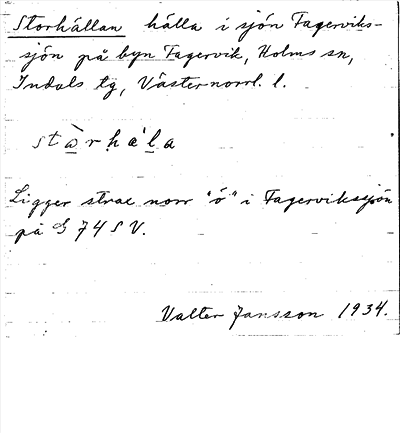 Storhällan hälla i sjön Fagerviks-
sjön på byn Fagervik, Holms sn,
Indals tg, Västernorrl. l.
Ligger strax norr "ö" i Fagervikssjön
på G 74 S V.
Valter Jansson 1934.